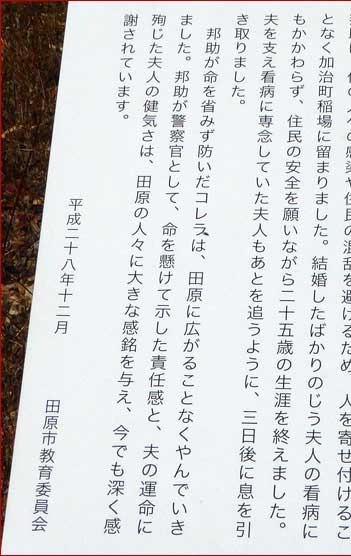 他の人への感染や住民の混乱を避けるため、人を寄せ付けるこ
となく加治町稲場に留まりました。結婚したばかりのじう夫人の看病に
もかかわらず、住民の安全を願いながら二十五歳の生涯を終えました。
夫を支え看病に専念していた夫人もあとを追うように、三日後に息を引
き取りました。
邦助が命を省みず防いだコレラは、田原に広がることなくやんでいき
ました。邦助が警察官として、命を懸けて示した責任感と、夫の運命に
殉じた夫人の健気さは、田原の人々に大きな感銘を与え、今でも深く感
謝されています。
平成二十八年十二月
田原市教育委員会